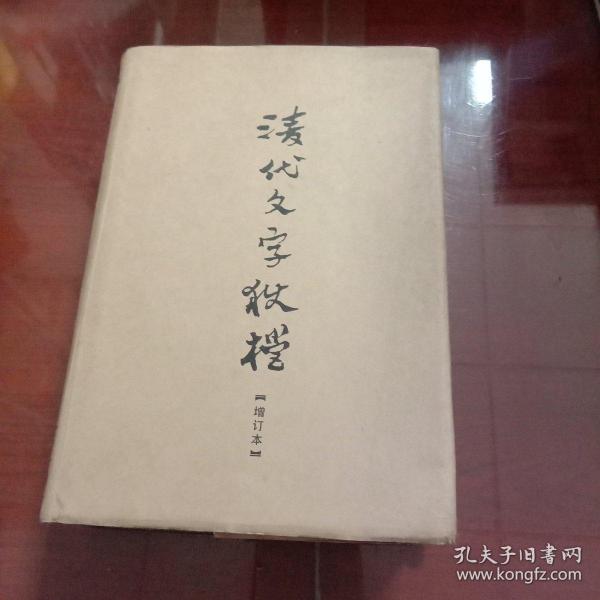 清代文字獄檔
【增订本】
孔夫子旧書网
www.kongfz.com